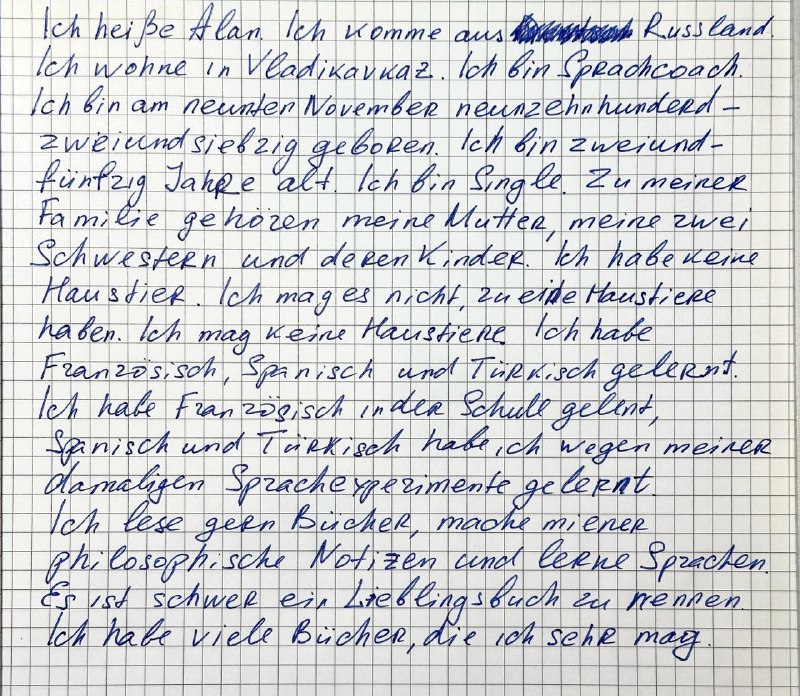 Ich heiße Alan. Ich komme aus Russland.
Ich wohne in Vladikavkaz. Ich bin Sprachcoach.
Ich bin am neunten November neunzehnhunderd-
zweiundsiebzig geboren. Ich bin zweiund-
fünfzig Jahre alt. Ich bin Single. Zu meiner
Familie gehören meine Mutter, meine zwei
Schwestern und deren Kinder. Ich habe keine
Haustier. Ich mag es nicht, zu eine Haustiere
haben. Ich mag keine Haustiere. Ich habe
Französisch, Spanisch und Türkisch gelernt.
Ich habe Französisch in der Schule gelent,
Spanisch und Türkisch habe ich wegen meiner
damaligen Sprachexperimente gelernt.
Ich lese gern Bücher, mache miener
philosophische Notizen und lerne Sprachen.
Es ist schwer ein Lieblingsbuch zu nennen.
Ich habe viele Bücher, die ich sehr mag.